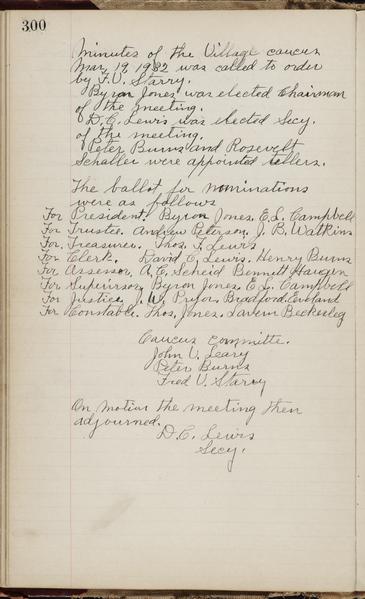 300
Minutes of the Village caucus
Mar, 19, 1932 was called to order
by F.V. Starry.
Byron Jones was elected Chairman
of the meeting.
D.C. Lewis was elected Secy.
of the meeting.
Peter Burns and Rosevelt
Schaller were appointed tellers.
The ballot for nominations
were as follows
For President. Byron Jones, E.L. Campbell
For Trustee. Andrew Peterson, J. B. Watkins
For Treasurer. Thos. F. Lewis
For Clerk. David C. Lewis. Henry Burns
For Assessor, A.C. Scheid Bennett Haugen
For Supervisor, Byron Jones, E.L. Campbell
For Justice, J.W. Pryor. Bradford
For Constable. Thos. Jones. Lavern
Caucus Committe.
John V. Leary
Peter Burns
Fred V. Starry
On motion the meeting then
adjourned.
D.C. Lewis
Secy.